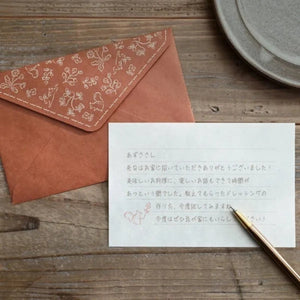 あずささん
先日はお家に招いていただきありがとうございました!
美味しいお料理に、楽しいお話もできて時間が
あっという間でした。教えてもらったドレッシングの
作り方、今度試してみますね。
今度はぜひ我が家にもいらしてください!